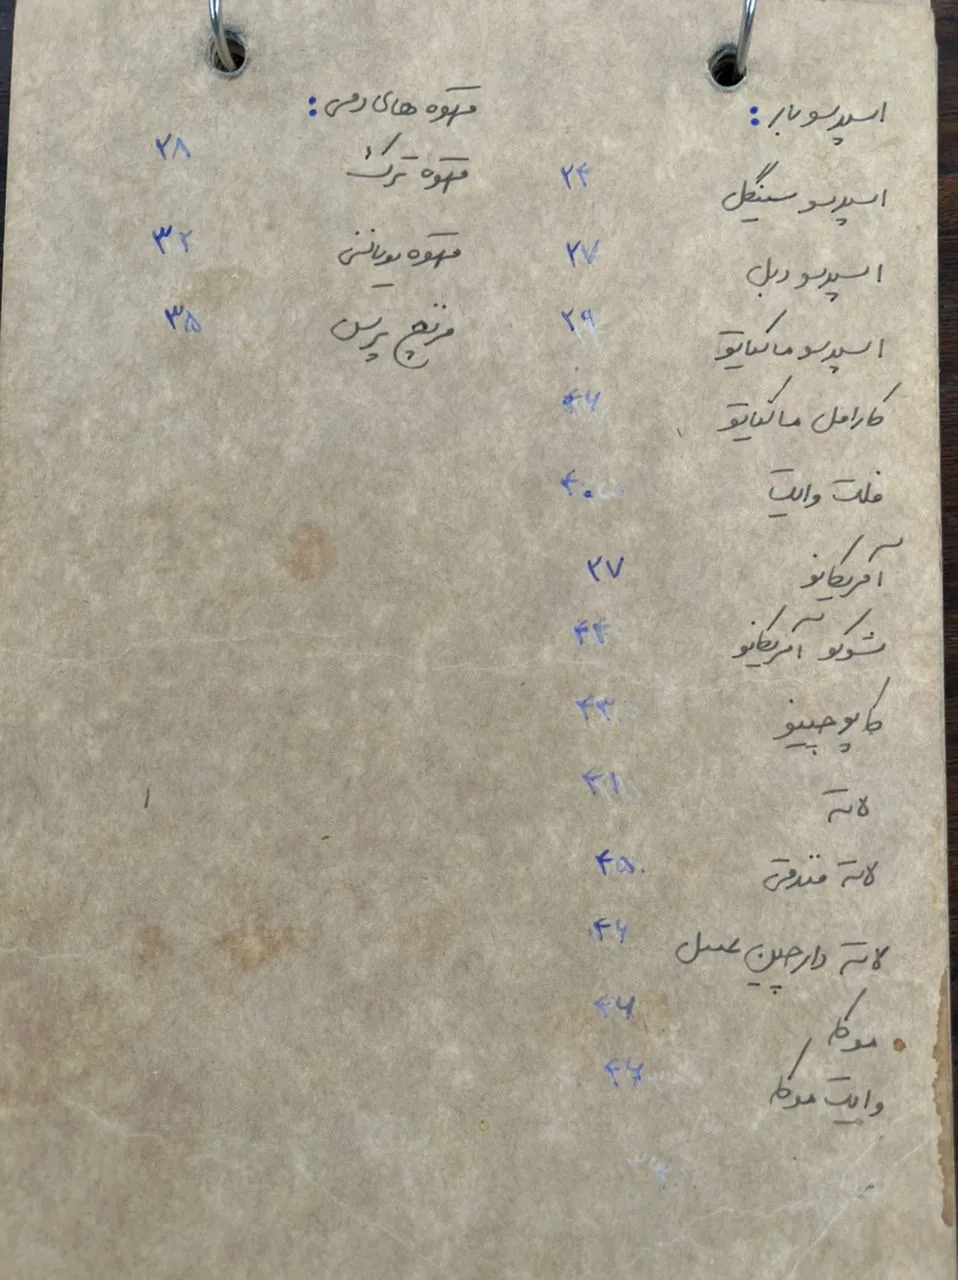 اسپرسو بار:
اسپرسو سینگل ۲۴
اسپرسو دبل ۲۷
اسپرسو ماکیاتو ۲۹
کارامل ماکیاتو ۴۶
فلت وایت ۴۰
آمریکانو ۲۷
شوکو آمریکانو ۴۴
کاپوچینو ۴۳
لاته ۴۱
لاته فندقی ۴۵
لاته دارچین عسل ۴۶
موکا ۴۶
وایت موکا ۴۶
قهوه های دمی:
قهوه ترک ۲۸
قهوه یونانی ۳۲
فرنچ پرس ۳۵